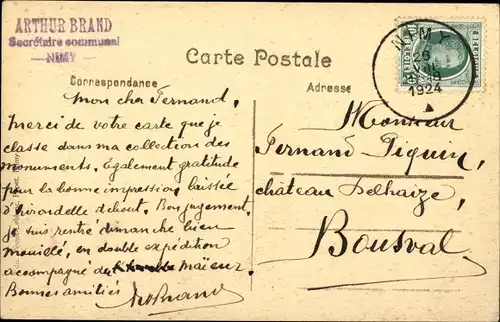 ARTHUR BRAND
Secrétaire communal
— NIMY —
Carte Postale
NIMY
6
1924
Correspondance
Adresse
Mon cher Fernand,
Merci de votre carte que je
classe dans ma collection des
monuments. Également gratitude
pour la bonne impression laissée
d'hirondelle debout. Bon jugement.
je suis rentré dimanche bien
mouillé, en double expédition
accompagné du Maïeur.
Bonnes amitiés
ArtBrand
Monsieur
Fernand Piquin,
château Delhaize,
Bousval